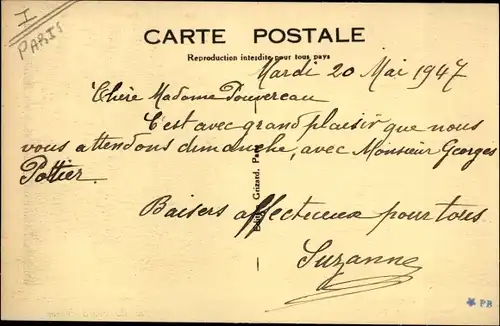 I
PARIS
CARTE POSTALE
Reproduction interdite pour tous pays
Mardi 20 Mai 1947
Chère Madame Pouvereau
C'est avec grand plaisir que nous
vous attendons dimanche, avec Monsieur Georges
Pottier.
Baisers affectueux pour tous
Suzanne
Grizard, Paris
PR